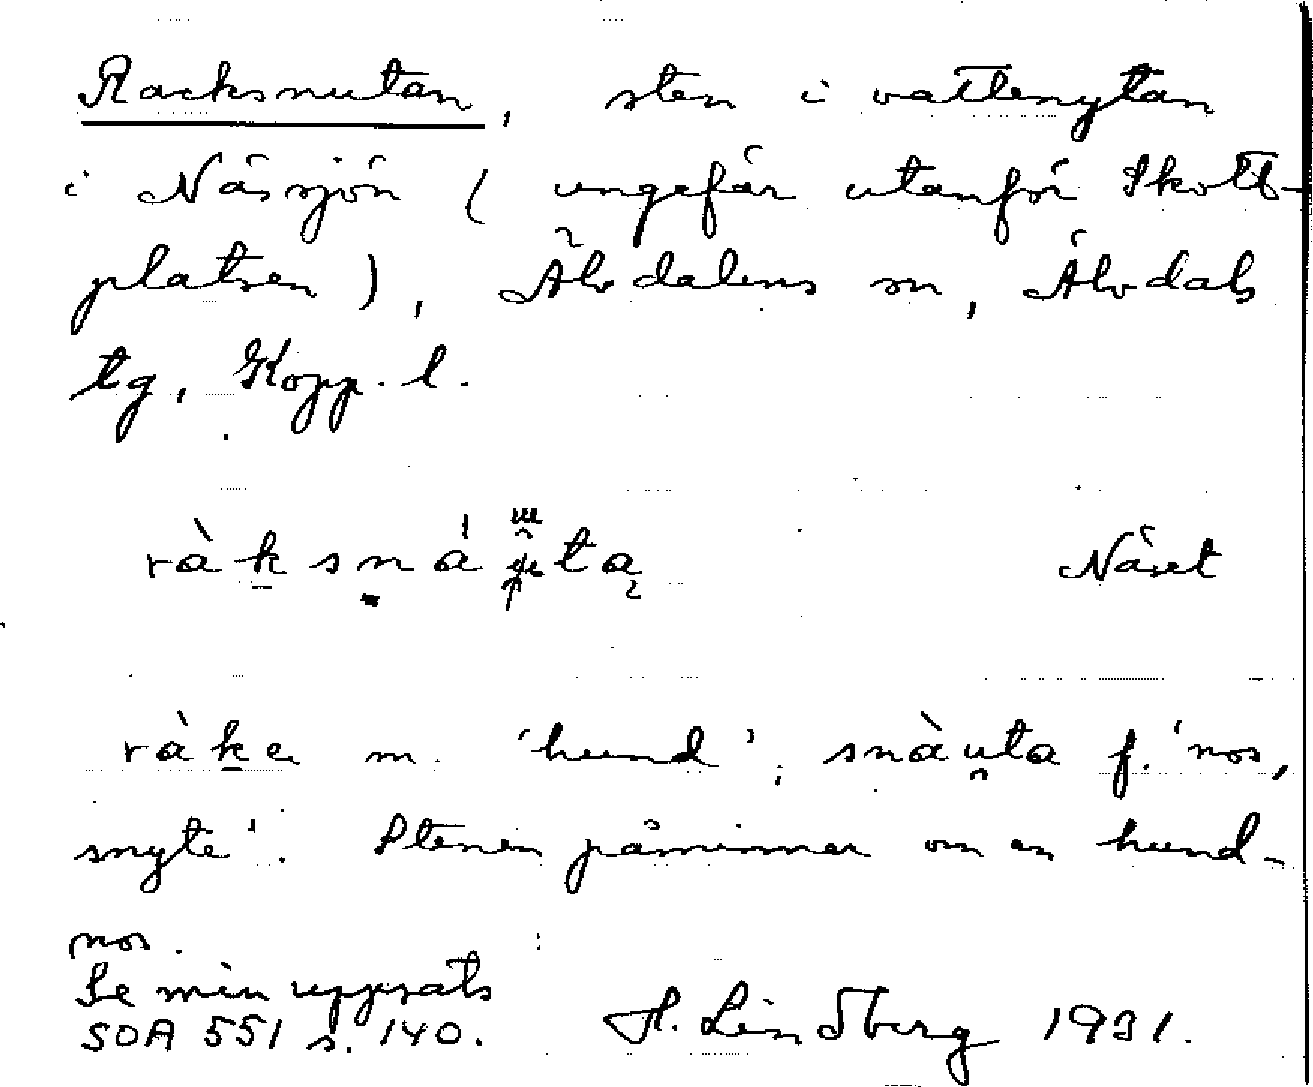 Racksnutan, sten i vattenytan
i Nässjön (ungefär utanför Skott-
platsen), Älvdalens sn, Älvdals
tg, Kopp. l.
ràksná ta̢ Näset
ràke m. 'hund'; snàu̯ta f. 'nos,
snyte'. Stenen påminner om en hund-
nos.
Se min uppsats
SOA 551 s. 140. H. Lindberg 1931.